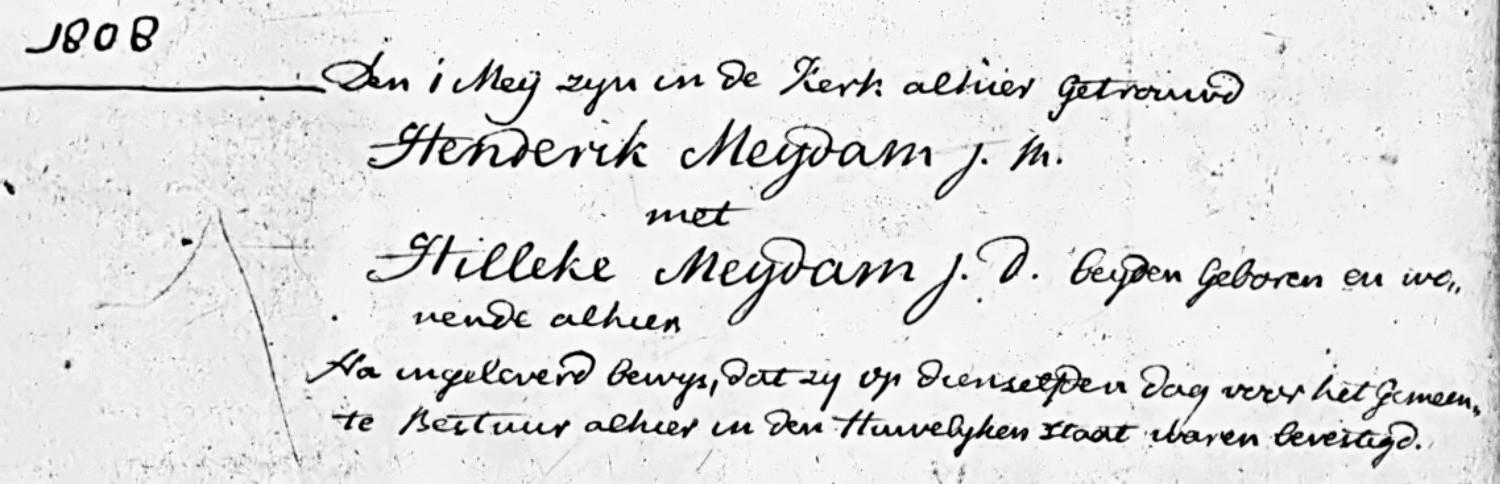 1808
Den 1 Meij zyn in de Kerk alhier getrouwd
Henderik Meydam j. m.
met
Hilleke Meydam j. d. beyden geboren en wo„
nende alhier
Na ingeleverd bewys, dat zy op dienselfden dag voor het Gemeen„
te Bestuur alhier in den Huwelyken staat waren bevestigd.